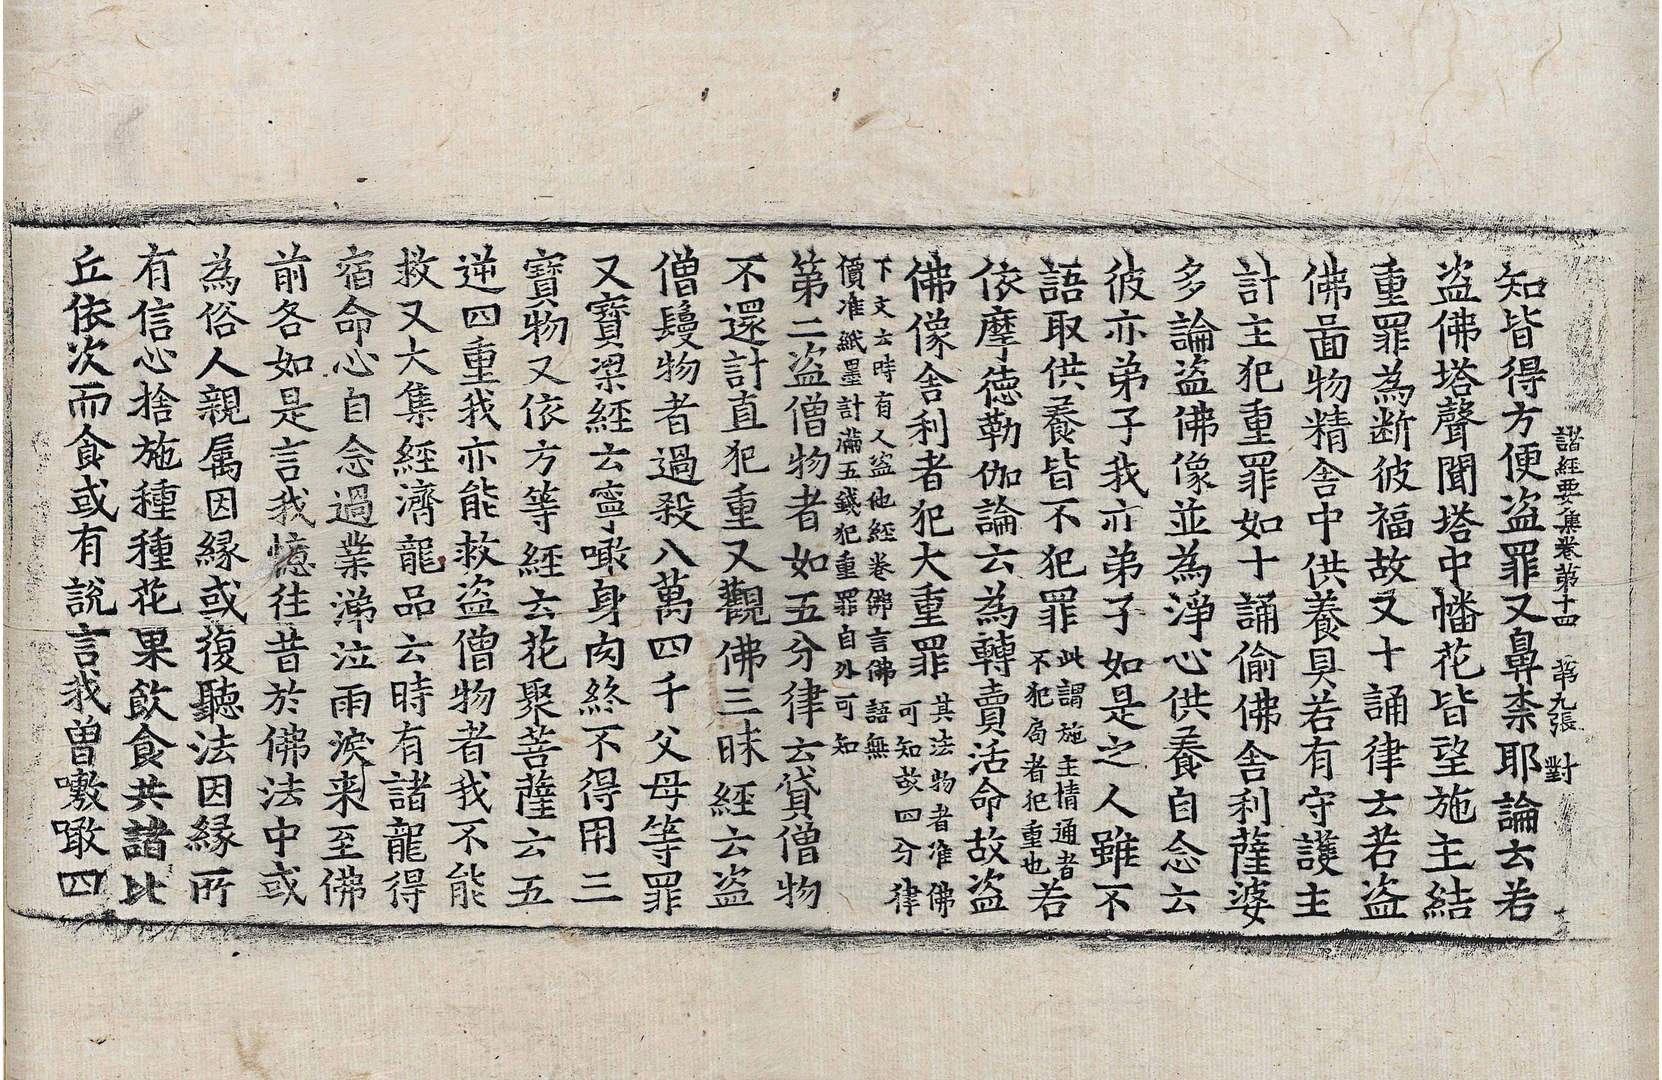 諸經要集卷第十四　第九張　對
知皆得方便盗罪又鼻柰耶論云若
盗佛塔聲聞塔中幡花皆望施主結
重罪為断彼福故又十誦律云若盗
佛啚物精舍中供養具若有守護主
計主犯重罪如十誦偷佛舍利薩婆
多論盗佛像並為淨心供養自念云
彼亦弟子我亦弟子如是之人雖不
語取供養皆不犯罪此謂施主情通者
不犯局者犯重也若
依摩德勒伽論云為轉賣活命故盗
佛像舍利者犯大重罪其法物者准佛
可知故四分律
下文云時有人盗他經卷佛言佛語無
價准紙墨計滿五錢犯重罪自外可知
第二盗僧物者如五分律云貸僧物
不還計直犯重又觀佛三昧經云盗
僧鬘物者過殺八萬四千父母等罪
又寶梁經云寧噉身肉終不得用三
寶物又依方等經云花聚菩薩云五
逆四重我亦能救盗僧物者我不能
救又大集經濟龍品云時有諸龍得
宿命心自念過業涕泣雨淚来至佛
前各如是言我憶往昔於佛法中或
為俗人親属因緣或復聽法因緣所
有信心捨施種種花果飲食共諸比
丘依次而食或有說言我曾噉噉四